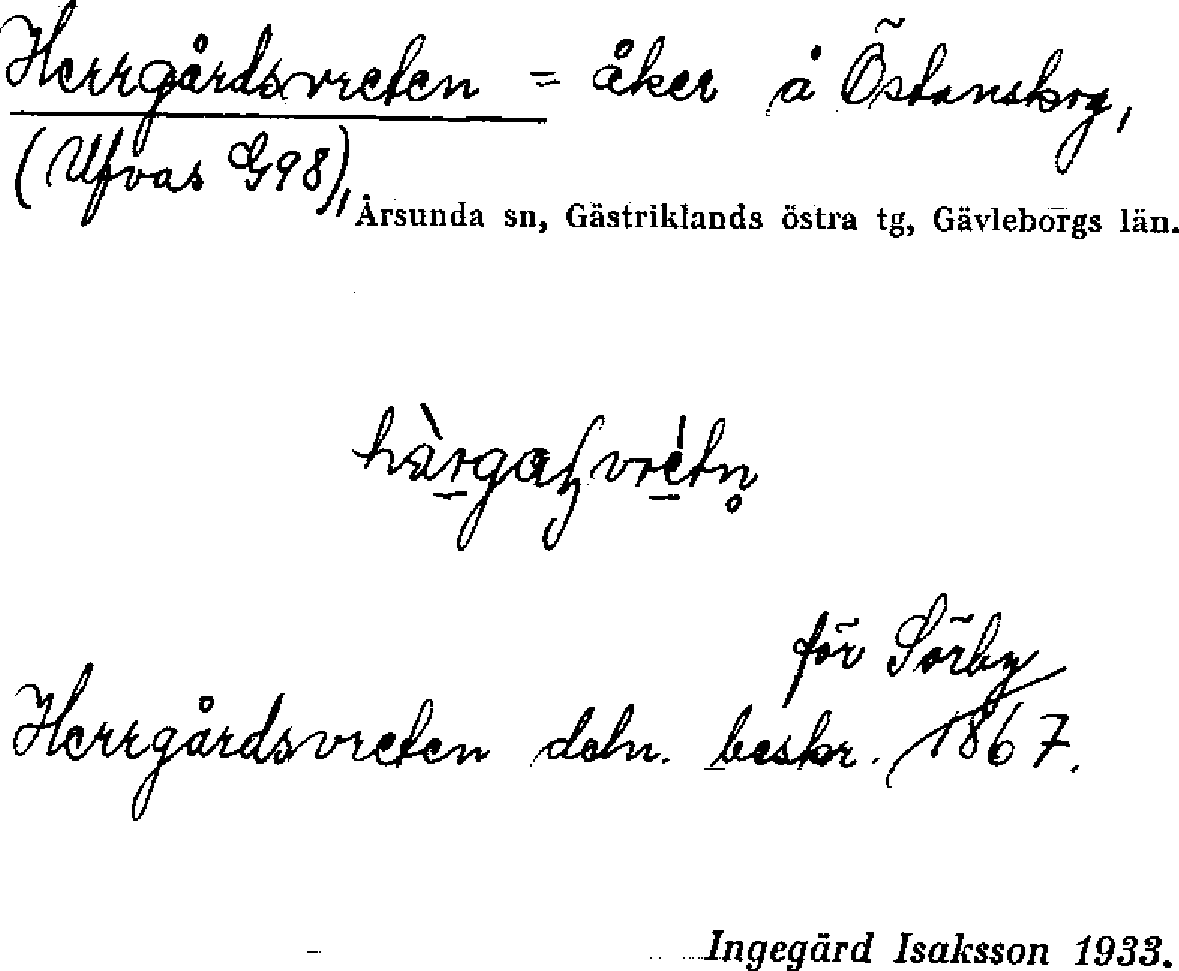 Herrgårdsvreten = åker å Östanskog,
(Ufvas G98),
Årsunda sn, Gästriklands östra tg, Gävleborgs län.
för Sörby
Herrgårdsvreten dchn. beskr. 1867.
Ingegärd Isaksson 1933.